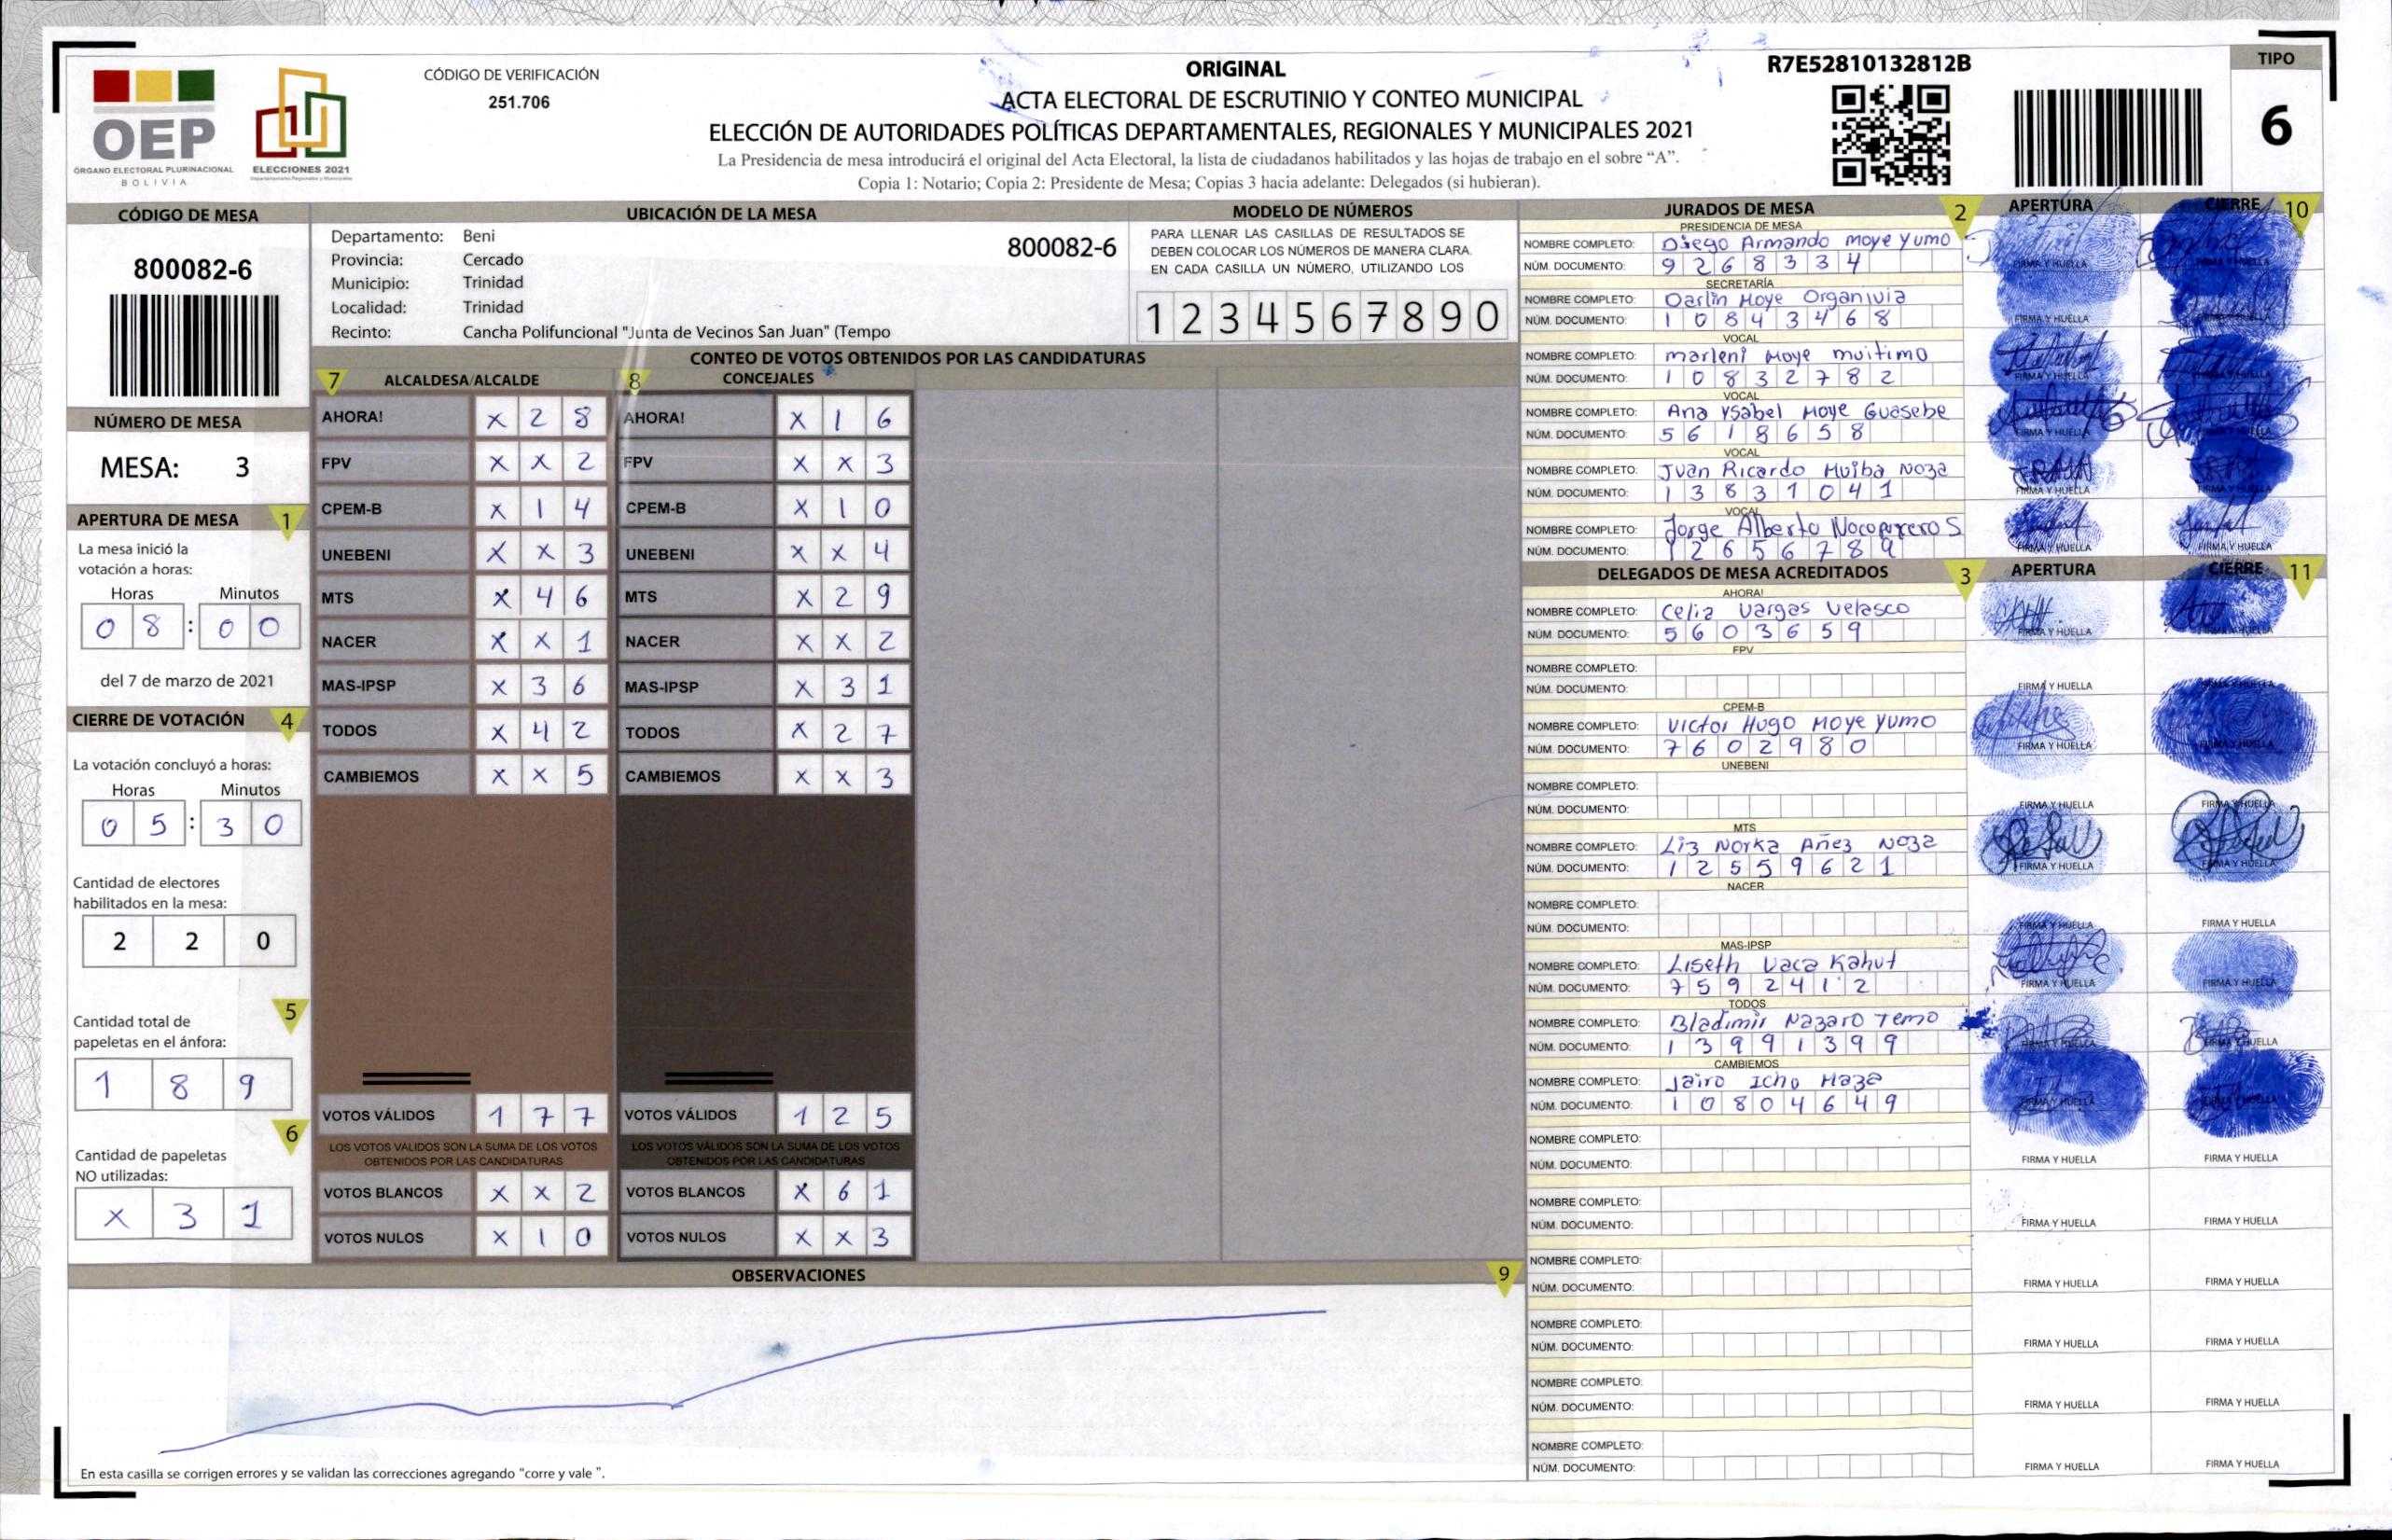 OEP
ÓRGANO ELECTORAL PLURINACIONAL
BOLIVIA
ELECCIONES 2021
CÓDIGO DE VERIFICACIÓN
251.706
ORIGINAL
ACTA ELECTORAL DE ESCRUTINIO Y CONTEO MUNICIPAL
ELECCIÓN DE AUTORIDADES POLÍTICAS DEPARTAMENTALES, REGIONALES Y MUNICIPALES 2021
La Presidencia de mesa introducirá el original del Acta Electoral, la lista de ciudadanos habilitados y las hojas de trabajo en el sobre “A”.
Copia 1: Notario; Copia 2: Presidente de Mesa; Copias 3 hacia adelante: Delegados (si hubieran).
R7E52810132812B
TIPO
6
CÓDIGO DE MESA
800082-6
NÚMERO DE MESA
MESA: 3
APERTURA DE MESA 1
La mesa inició la
votación a horas:
Horas Minutos
0 8 : 0 0
del 7 de marzo de 2021
CIERRE DE VOTACIÓN 4
La votación concluyó a horas:
Horas Minutos
0 5 : 3 0
Cantidad de electores
habilitados en la mesa:
2 2 0
5
Cantidad total de
papeletas en el ánfora:
1 8 9
6
Cantidad de papeletas
NO utilizadas:
X 3 1
UBICACIÓN DE LA MESA
Departamento: Beni
800082-6
Provincia: Cercado
Municipio: Trinidad
Localidad: Trinidad
Recinto: Cancha Polifuncional "Junta de Vecinos San Juan" (Tempo
MODELO DE NÚMEROS
PARA LLENAR LAS CASILLAS DE RESULTADOS SE
DEBEN COLOCAR LOS NÚMEROS DE MANERA CLARA.
EN CADA CASILLA UN NÚMERO, UTILIZANDO LOS
1 2 3 4 5 6 7 8 9 0
CONTEO DE VOTOS OBTENIDOS POR LAS CANDIDATURAS
7 ALCALDESA/ALCALDE 8 CONCEJALES
AHORA! X 2 8 AHORA! X 1 6
FPV X X 2 FPV X X 3
CPEM-B X 1 4 CPEM-B X 1 0
UNEBENI X X 3 UNEBENI X X 4
MTS X 4 6 MTS X 2 9
NACER X X 1 NACER X X 2
MAS-IPSP X 3 6 MAS-IPSP X 3 1
TODOS X 4 2 TODOS X 2 7
CAMBIEMOS X X 5 CAMBIEMOS X X 3
VOTOS VÁLIDOS 1 7 7 VOTOS VÁLIDOS 1 2 5
LOS VOTOS VÁLIDOS SON LA SUMA DE LOS VOTOS LOS VOTOS VÁLIDOS SON LA SUMA DE LOS VOTOS
OBTENIDOS POR LAS CANDIDATURAS OBTENIDOS POR LAS CANDIDATURAS
VOTOS BLANCOS X X 2 VOTOS BLANCOS X 6 1
VOTOS NULOS X 1 0 VOTOS NULOS X X 3
OBSERVACIONES 9
En esta casilla se corrigen errores y se validan las correcciones agregando "corre y vale ".
JURADOS DE MESA 2 APERTURA CIERRE 10
PRESIDENCIA DE MESA
NOMBRE COMPLETO: Diego Armando Moye Yumo
NÚM. DOCUMENTO: 9 2 6 8 3 3 4
FIRMA Y HUELLA
SECRETARÍA
NOMBRE COMPLETO: Darlin Moye Organivia
NÚM. DOCUMENTO: 1 0 8 4 3 4 6 8
FIRMA Y HUELLA
VOCAL
NOMBRE COMPLETO: Marleni Moye Muitimo
NÚM. DOCUMENTO: 1 0 8 3 2 7 8 2
FIRMA Y HUELLA
VOCAL
NOMBRE COMPLETO: Ana Ysabel Moye Guasebe
NÚM. DOCUMENTO: 5 6 1 8 6 5 8
FIRMA Y HUELLA
VOCAL
NOMBRE COMPLETO: Juan Ricardo Muiba Noza
NÚM. DOCUMENTO: 1 3 8 3 1 0 4 1
FIRMA Y HUELLA
VOCAL
NOMBRE COMPLETO: Jorge Alberto
NÚM. DOCUMENTO: 1 2 6 5 6 7 8 9
FIRMA Y HUELLA FIRMA Y HUELLA
DELEGADOS DE MESA ACREDITADOS 3 APERTURA CIERRE 11
AHORA!
NOMBRE COMPLETO: Celia Vargas Velasco
NÚM. DOCUMENTO: 5 6 0 3 6 5 9
FIRMA Y HUELLA
FPV
NOMBRE COMPLETO:
NÚM. DOCUMENTO:
FIRMA Y HUELLA FIRMA Y HUELLA
CPEM-B
NOMBRE COMPLETO: Victor Hugo Moye Yumo
NÚM. DOCUMENTO: 7 6 0 2 9 8 0
FIRMA Y HUELLA FIRMA Y HUELLA
UNEBENI
NOMBRE COMPLETO:
NÚM. DOCUMENTO:
FIRMA Y HUELLA FIRMA Y HUELLA
MTS
NOMBRE COMPLETO: Liz Norka Añez Noza
NÚM. DOCUMENTO: 1 2 5 5 9 6 2 1
FIRMA Y HUELLA FIRMA Y HUELLA
NACER
NOMBRE COMPLETO:
NÚM. DOCUMENTO:
FIRMA Y HUELLA FIRMA Y HUELLA
MAS-IPSP
NOMBRE COMPLETO: Liseth Vaca Kahut
NÚM. DOCUMENTO: 7 5 9 2 4 1 2
FIRMA Y HUELLA FIRMA Y HUELLA
TODOS
NOMBRE COMPLETO: Bladimir Nazaro Temo
NÚM. DOCUMENTO: 1 3 9 9 1 3 9 9
FIRMA Y HUELLA FIRMA Y HUELLA
CAMBIEMOS
NOMBRE COMPLETO: Jairo Icho Maza
NÚM. DOCUMENTO: 1 0 8 0 4 6 4 9
FIRMA Y HUELLA FIRMA Y HUELLA
NOMBRE COMPLETO:
NÚM. DOCUMENTO:
FIRMA Y HUELLA FIRMA Y HUELLA
NOMBRE COMPLETO:
NÚM. DOCUMENTO:
FIRMA Y HUELLA FIRMA Y HUELLA
NOMBRE COMPLETO:
NÚM. DOCUMENTO:
FIRMA Y HUELLA FIRMA Y HUELLA
NOMBRE COMPLETO:
NÚM. DOCUMENTO:
FIRMA Y HUELLA FIRMA Y HUELLA
NOMBRE COMPLETO:
NÚM. DOCUMENTO:
FIRMA Y HUELLA FIRMA Y HUELLA
NOMBRE COMPLETO:
NÚM. DOCUMENTO:
FIRMA Y HUELLA FIRMA Y HUELLA